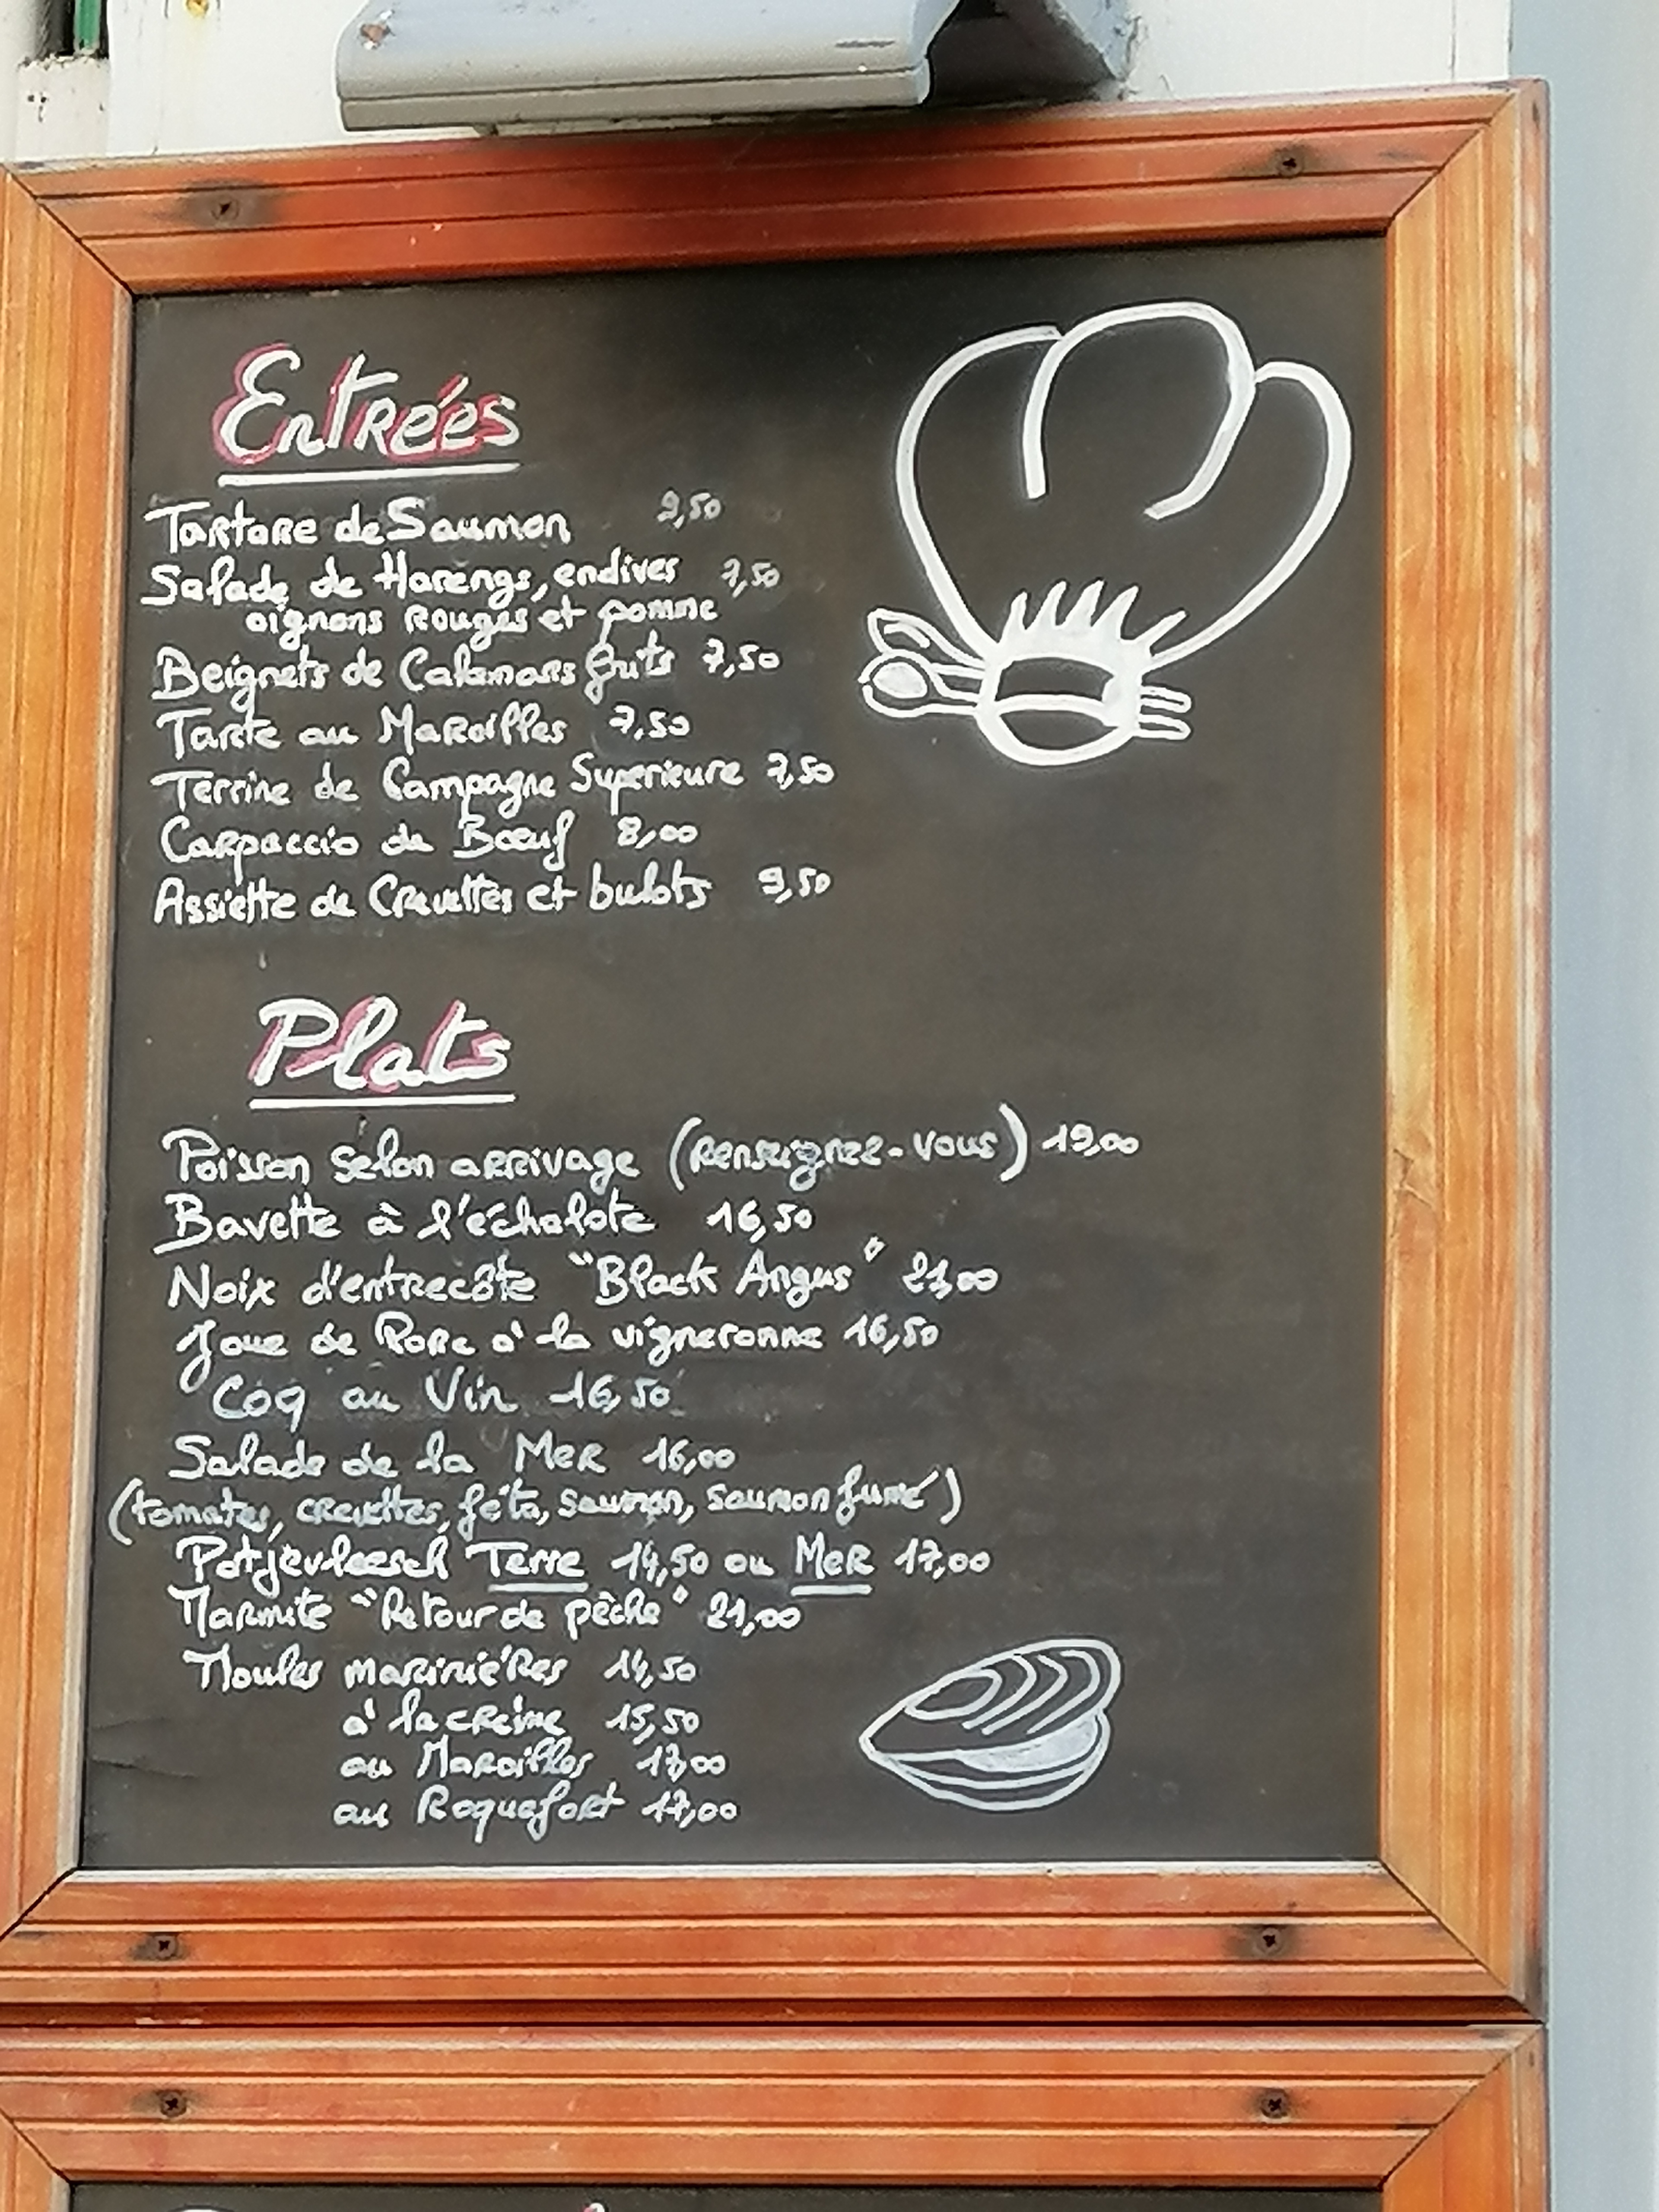 Entrées
Tartare de Saumon 9,50
Salade de Harengs, endives 7,50
oignons rouges et pomme
Beignets de Calamars frits 7,50
Tarte au Maroilles 7,50
Terrine de Campagne Superieure 7,50
Carpaccio de Bœuf 8,00
Assiette de Crevettes et bulots 9,50
Plats
Poisson selon arrivage (Renseignez-vous) 19,00
Bavette à l'échalote 16,50
Noix d'entrecôte "Black Angus" 21,00
Joue de Porc à la vigneronne 16,50
Coq au Vin 16,50
Salade de la Mer 16,00
(tomates, crevettes, féta, saumon, saumon fumé)
Potjevleesch Terre 14,50 ou Mer 17,00
Marmite "Retour de pêche" 21,00
Moules marinières 14,50
à la crème 15,50
au Maroilles 17,00
au Roquefort 17,00